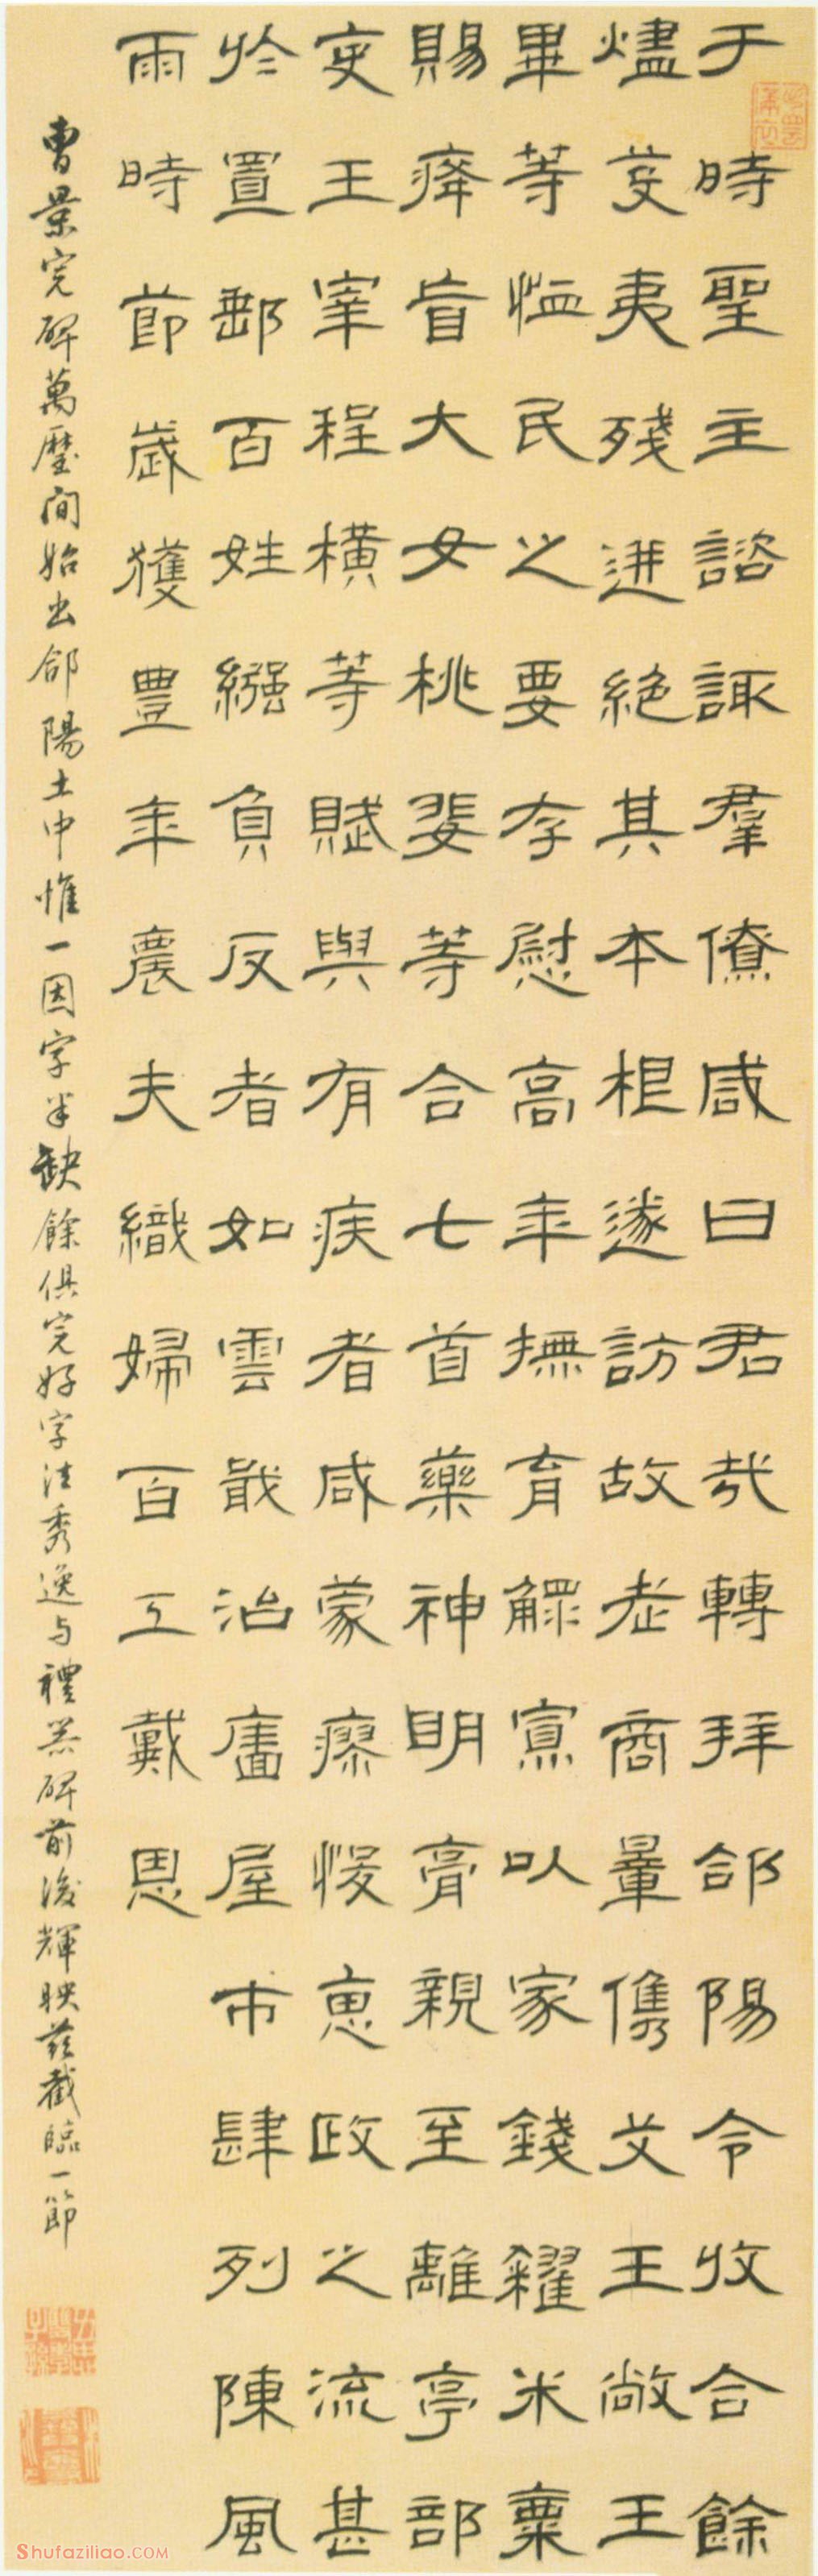 于時聖主諮諏羣僚咸曰君哉轉拜郃陽令收合餘
燼芟夷殘迸絕其本根遂訪故老商量儁艾王敞王
畢等恤民之要存慰高年撫育鰥寡以家錢糴米粟
賜癃盲大女桃斐等合七首藥神明膏親至離亭部
吏王宰程橫等賦與有疾者咸蒙瘳悛惠政之流甚
於置郵百姓繈負反者如雲戢治廧屋市肆列陳風
雨時節歲獲豐年農夫織婦百工戴恩
曹景完碑萬曆間始出郃陽土中惟一因字半缺餘俱完好字法秀逸与禮器碑前後輝映茲截臨一節
Shufaziliao.COM